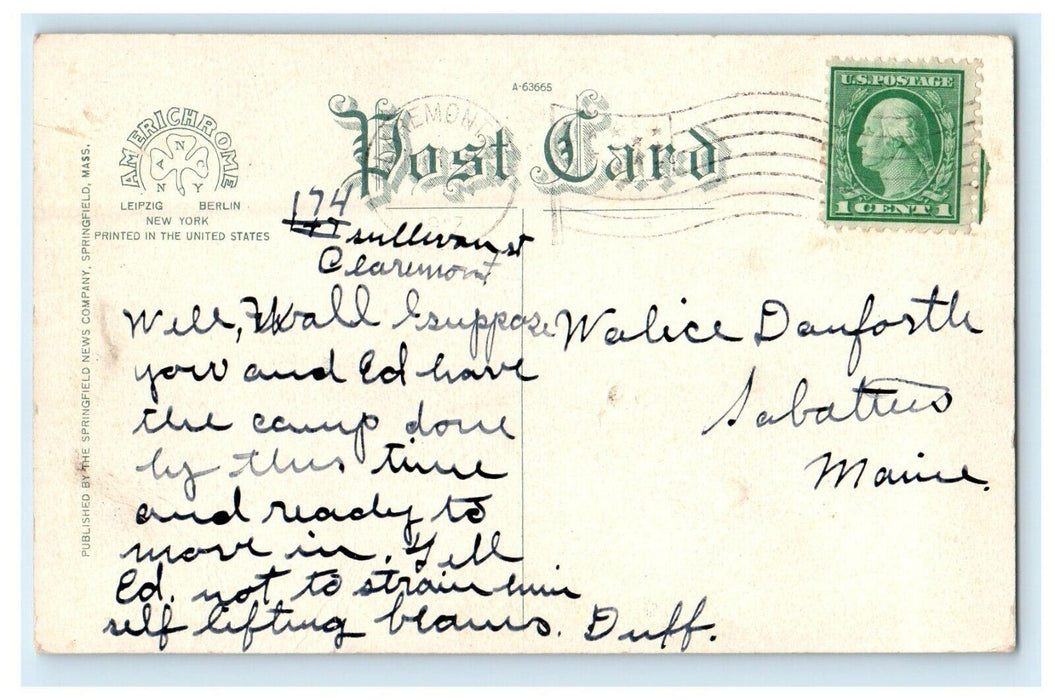 A-63665
Post Card
U.S. POSTAGE
1 CENT 1
AMERICHROME
A N C
N Y
LEIPZIG BERLIN
NEW YORK
PRINTED IN THE UNITED STATES
PUBLISHED BY THE SPRINGFIELD NEWS COMPANY, SPRINGFIELD, MASS.
174
sullivan st
Claremont
Well, Wall I suppose
you and Ed have
the camp done
by this time
and ready to
move in. Tell
Ed. not to strain him
self lifting beams. Duff.
Walice Danforth
Sabattus
Maine.